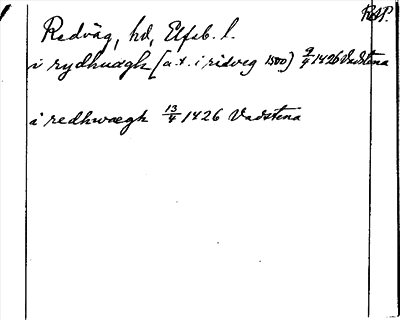 RAP.
Redväg, hd, Elfsb. l.
i rydhuægh [a.t. i ridveg 1500] 9/4 1426 Vadstena
i redhwægh 13/4 1426 Vadstena